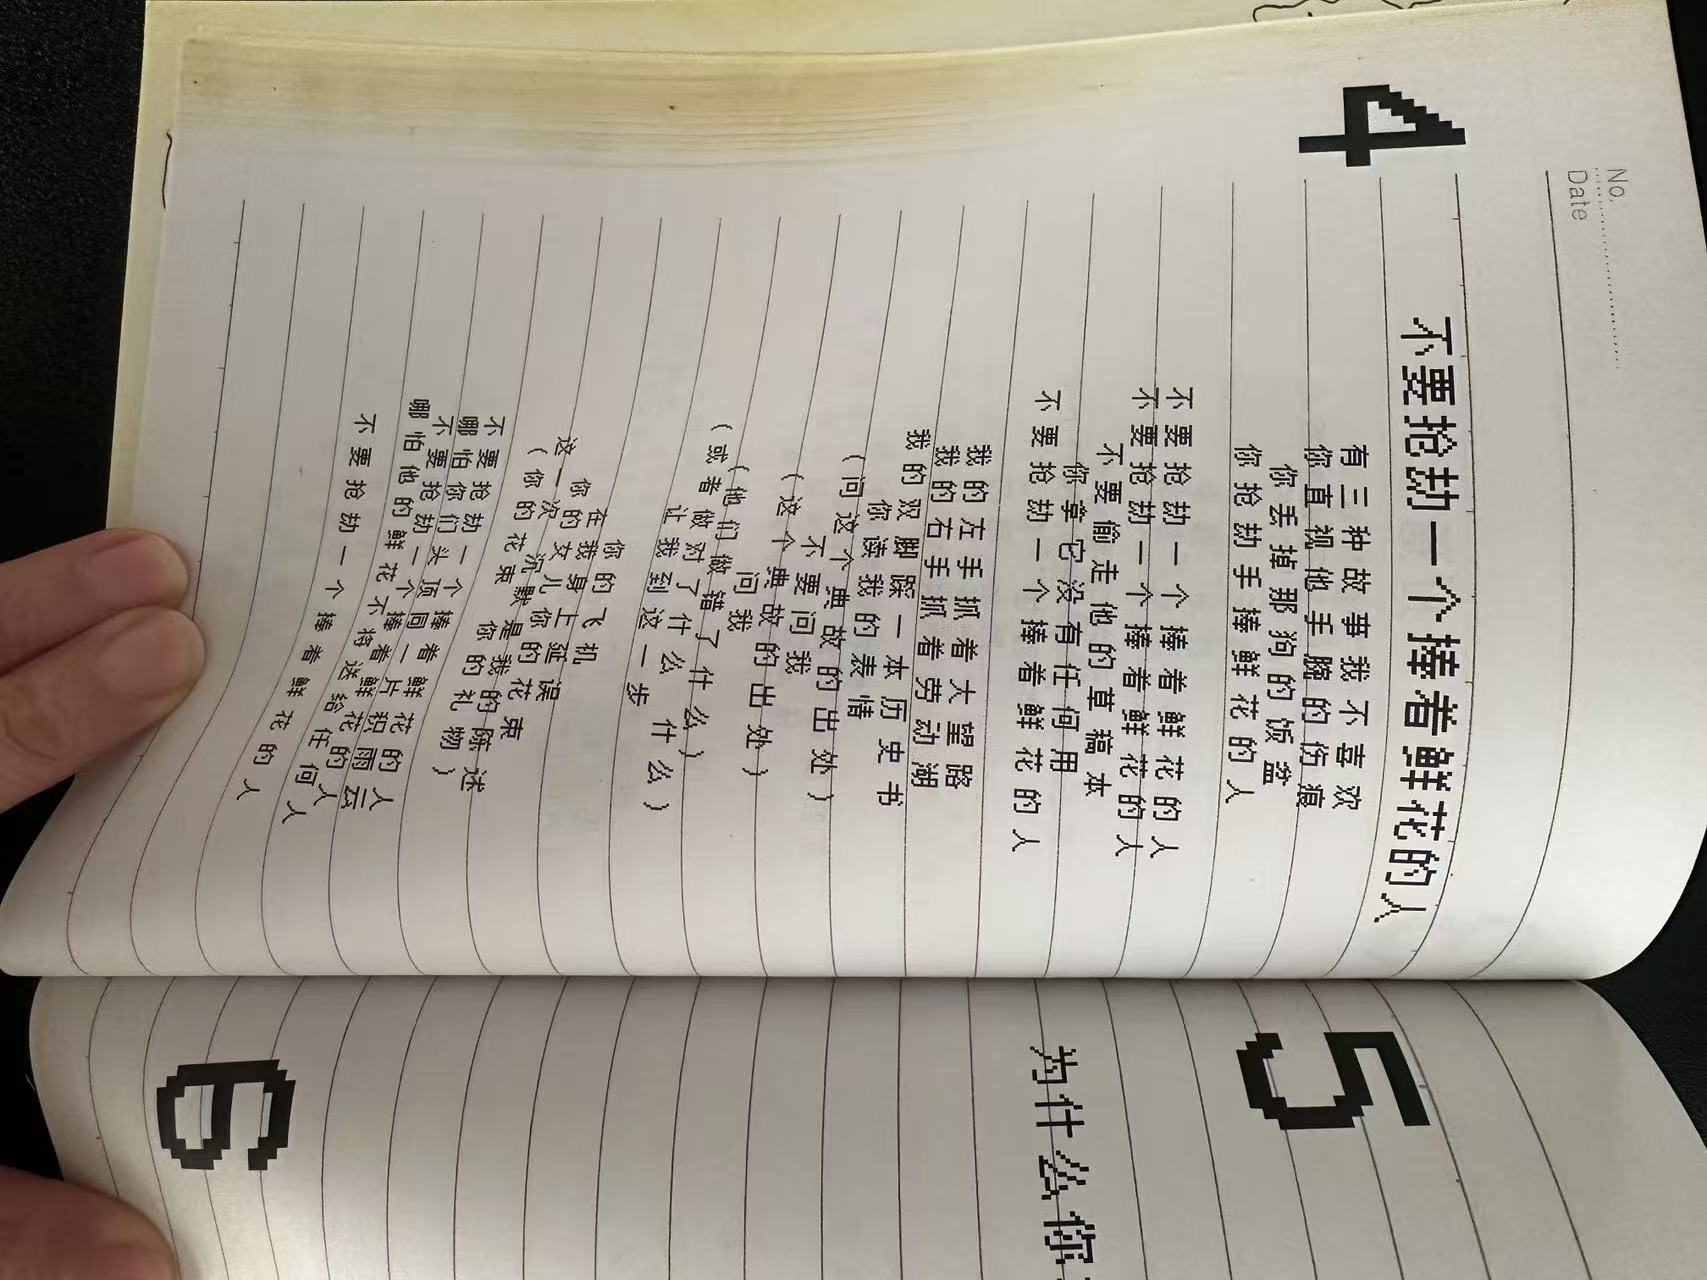 No.
Date
4
不要抢劫一个捧着鲜花的人
有三种故事我不喜欢
你直视他手腕的伤痕
你丢掉那狗的饭盆
你抢劫手捧鲜花的人
不要抢劫一个捧着鲜花的人
不要抢劫一个捧着鲜花的人
不要偷走他的草稿本
你拿它没有任何用
不要抢劫一个捧着鲜花的人
我的左手抓着大望路
我的右手抓着劳动湖
我的双脚踩一本历史书
你读我的表情
（问这个典故的出处）
不要问我
（这个典故的出处）
问我
（他们做错了什么）
（或者做对了什么 什么）
让我到这一步
你的飞机
在我身上延误
你的女儿你的花束
这一次沉默是我的陈述
（你的花束 你的礼物）
不要抢劫一个捧着鲜花的人
哪怕你们头顶同一片积雨云
不要抢劫一个捧着鲜花的人
哪怕他的鲜花不将送给任何人
不要抢劫一个捧着鲜花的人
5
为什么你
6